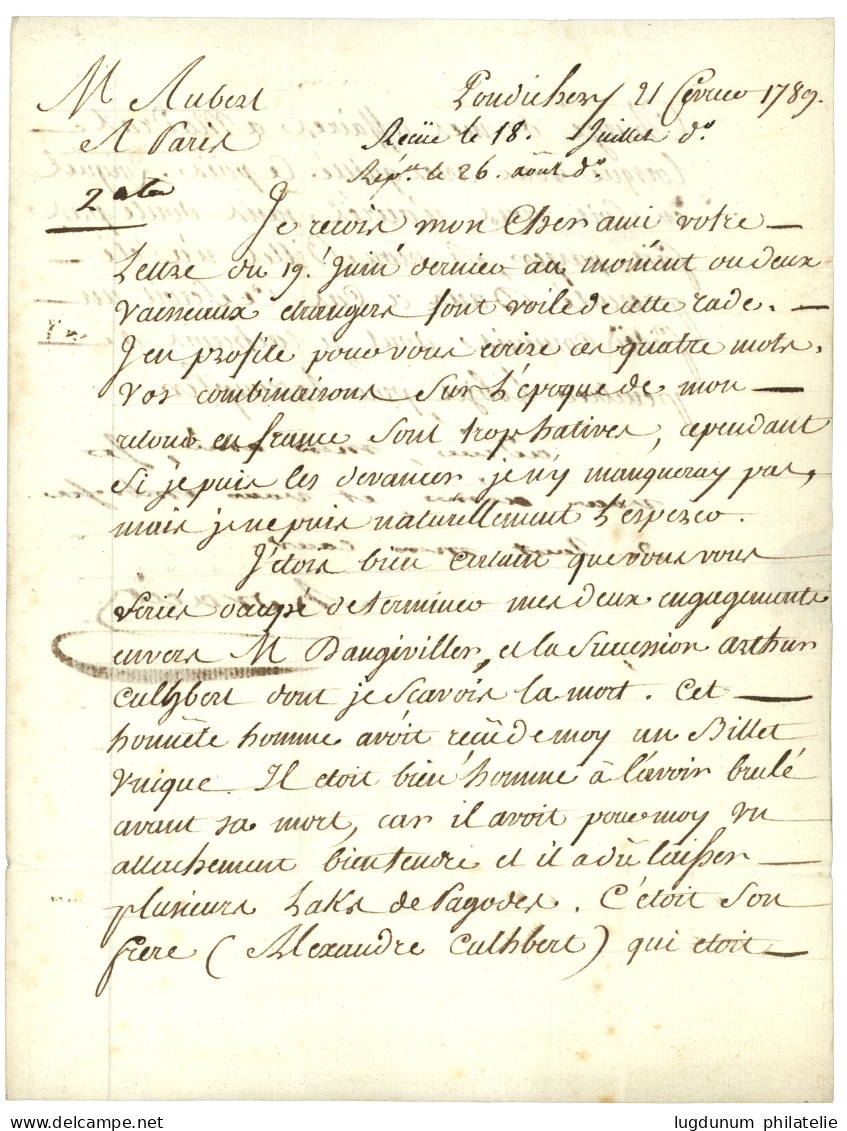 M Aubert
A Paris
Pondichery 21 fevrier 1789.
Reçüe le 18. Juillet d°.
Rép.ue le 26. août d°.
2 ata
Je reçois mon Cher ami votre
Lettre du 19. Juin dernier au moment ou deux
Vaisseaux etrangers font voile de cette rade.
J'en profite pour vous ecrire ces quatre mots.
Vos combinaisons sur l'époque de mon
retour en france sont trop hatives, cependant
Si je puis les devancer je n'y manqueray pas,
mais je ne puis naturellement l'esperer.
J'étois bien certain que vous vous
seriés occupé de terminer mes deux engagements
envers M Dangiviller, et la Succession Arthur
Cuthbert dont je scavois la mort. Cet
honnête homme avoit reçü de moy un Billet
Unique. Il etoit bien homme à l'avoir brulé
avant sa mort, car il avoit pour moy un
attachement bien tendre et il a dû laisser
plusieurs Laks de Pagodes. C'étoit son
frere (Alexandre Cuthbert) qui etoit
delcampe.net
lugdunum philatelie